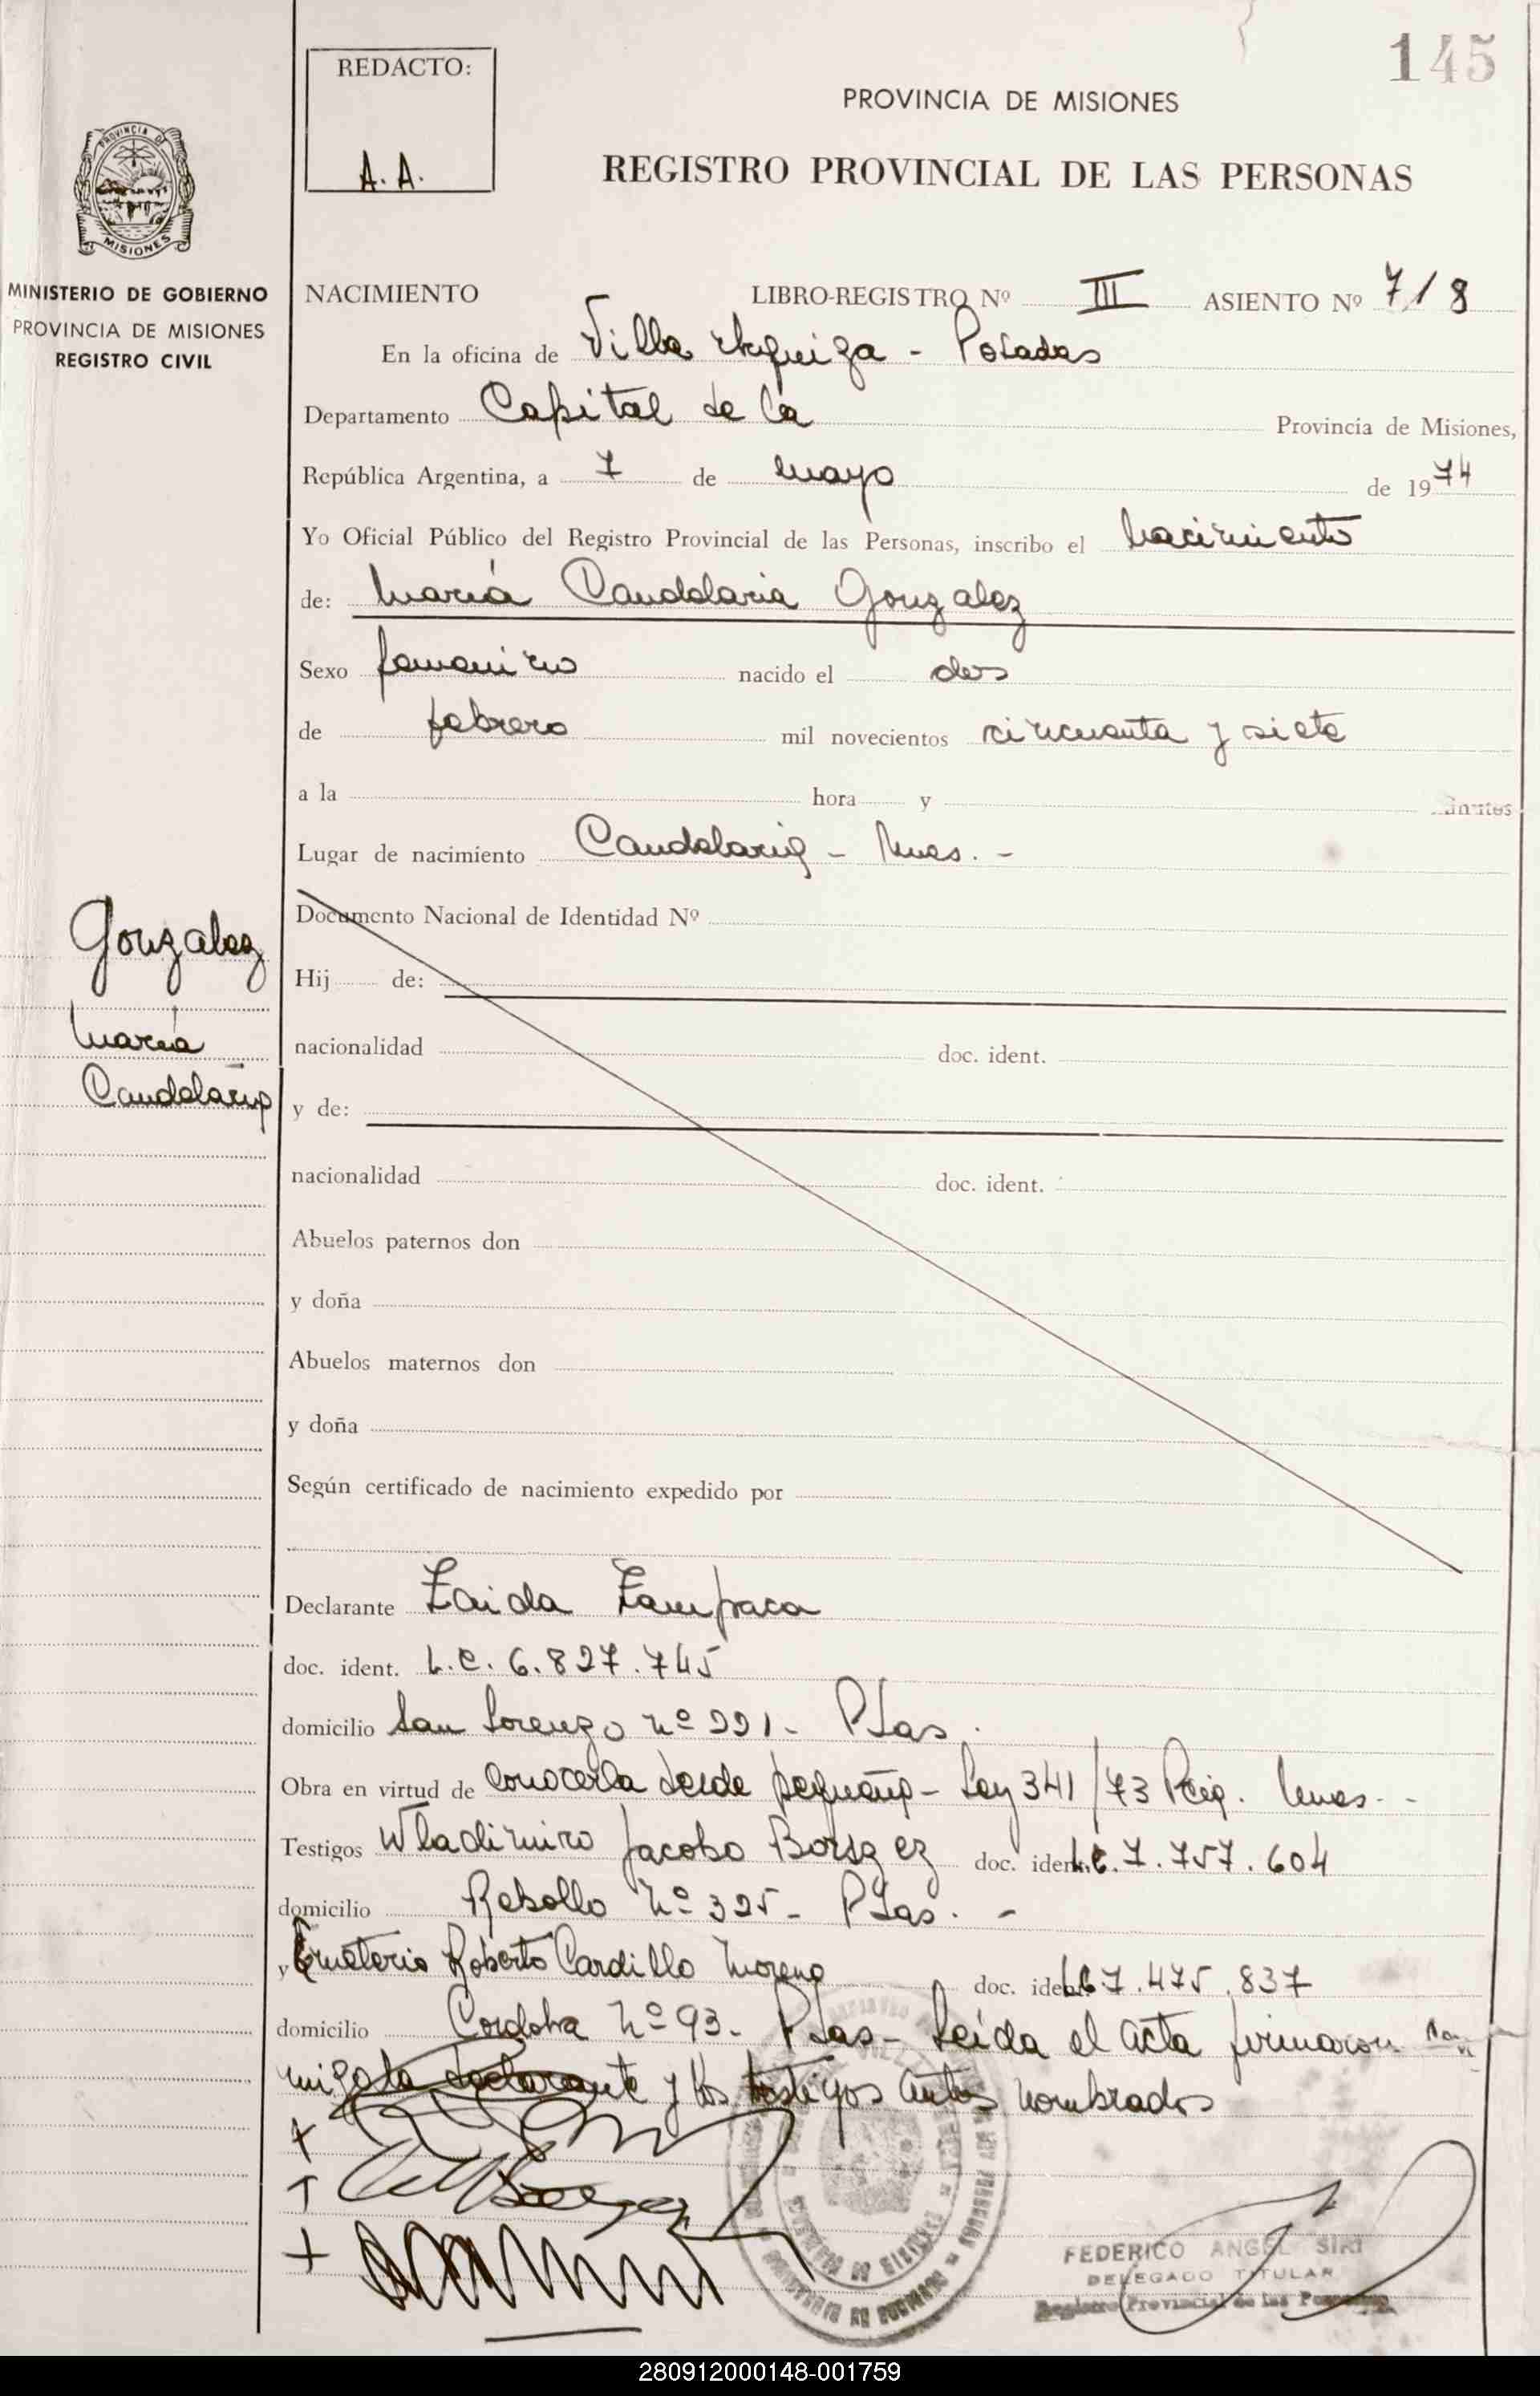 145
REDACTO:
A. A.
PROVINCIA DE MISIONES
REGISTRO PROVINCIAL DE LAS PERSONAS
PROVINCIA DE
MISIONES
MINISTERIO DE GOBIERNO
PROVINCIA DE MISIONES
REGISTRO CIVIL
NACIMIENTO LIBRO-REGISTRO Nº III ASIENTO Nº 718
En la oficina de Villa Urquiza - Posadas
Departamento Capital de la Provincia de Misiones,
República Argentina, a 7 de mayo de 1974
Yo Oficial Público del Registro Provincial de las Personas, inscribo el nacimiento
de: María Candelaria Gonzalez
Sexo femenino nacido el dos
de febrero mil novecientos cincuenta y siete
a la hora y minutos
Lugar de nacimiento Candelaria - Mnes. -
Documento Nacional de Identidad Nº
Gonzalez
María
Candelaria
Hij de:
nacionalidad doc. ident.
y de:
nacionalidad doc. ident.
Abuelos paternos don
y doña
Abuelos maternos don
y doña
Según certificado de nacimiento expedido por
Declarante Zaida Zampaca
doc. ident. L.C. 6.827.745
domicilio San Lorenzo nº 221 - Pdas.
Obra en virtud de conocerla desde pequeña - Ley 341/73 Mnes. -
Testigos Wladimiro Jacobo doc. ident. 7.757.604
domicilio Rebollo Nº 325 - Pdas. -
y Emeterio Roberto Cardillo Moreno doc. ident. 7.475.837
domicilio Cordoba Nº 93 - Pdas - Leída el acta firmaron
la declarante y los testigos antes nombrados
FEDERICO ANGEL
DELEGADO TITULAR
Registro Provincial de las Personas
280912000148-001759